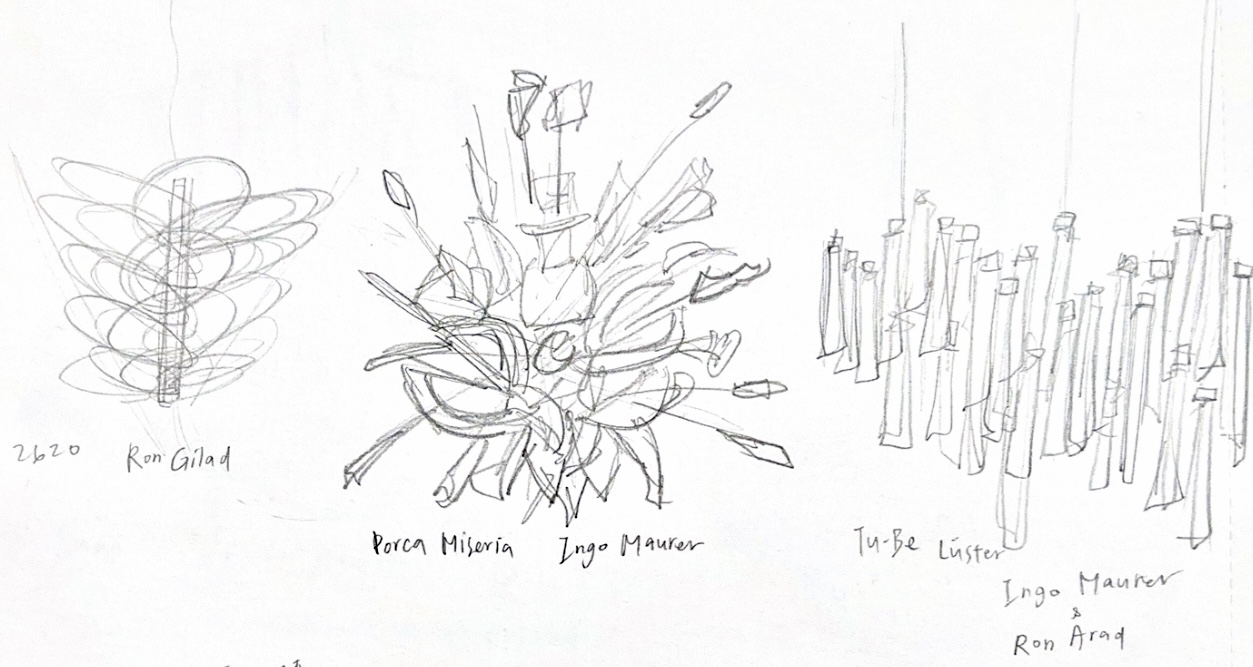 2620 Ron Gilad
Porca Miseria Ingo Maurer
Tu-Be Lüster
Ingo Maurer
&
Ron Arad